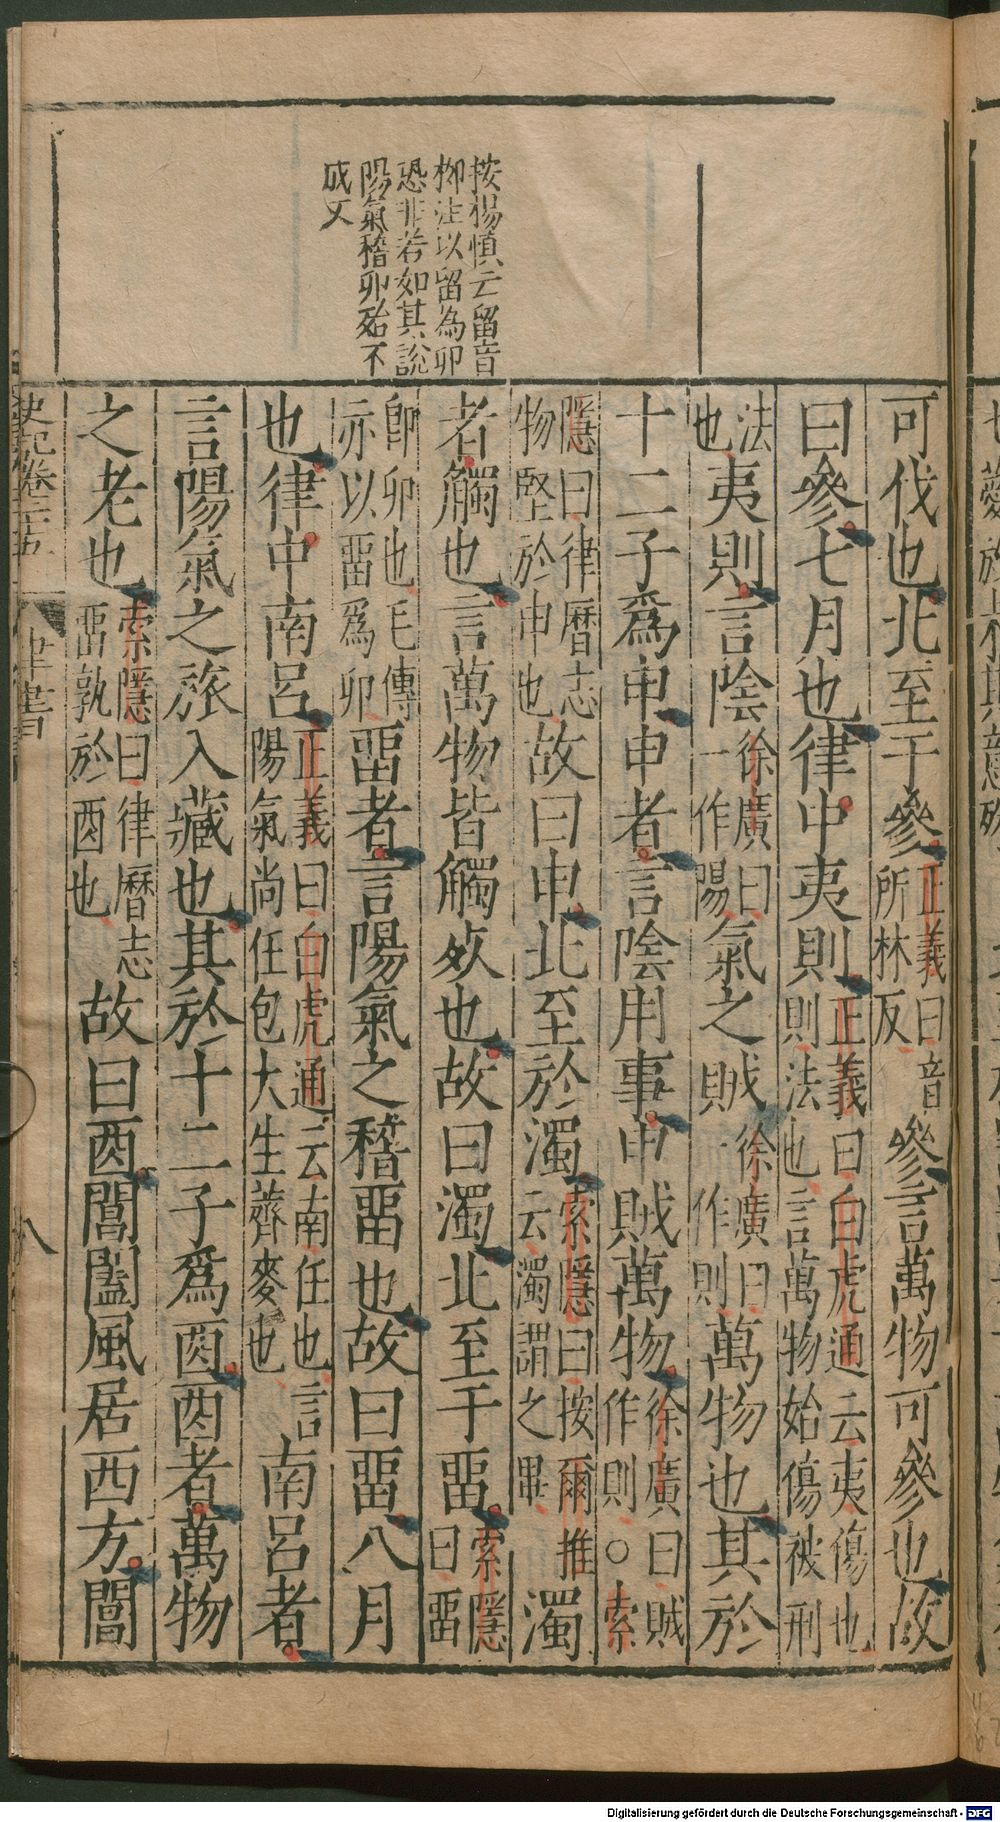 按楊慎云留音
柳注以留為卯
恐非若如其說
陽氣稽卯殆不
成文
可伐也北至于參正義曰音所林反參言萬物可參也故
曰參七月也律中夷則正義曰白虎通云夷傷也則法也言萬物始傷被刑
法也夷則言陰徐廣曰一作陽氣之賊徐廣曰一作則萬物也其於
十二子爲申申者言陰用事申賊萬物徐廣曰賊作則○索
隱曰律曆志物堅於申也故曰申北至於濁索隱曰按爾雅云濁謂之畢濁
者觸也言萬物皆觸死也故曰濁北至于畱索隱曰畱
卽卯也毛傳亦以畱爲卯畱者言陽氣之稽畱也故曰畱八月
也律中南呂正義曰白虎通云南任也言陽氣尚任包大生薺麥也南呂者
言陽氣之旅入藏也其於十二子爲酉酉者萬物
之老也索隱曰律曆志畱孰於酉也故曰酉閶闔風居西方閶
史記卷二十五
律書
八
Digitalisierung gefördert durch die Deutsche Forschungsgemeinschaft - DFG